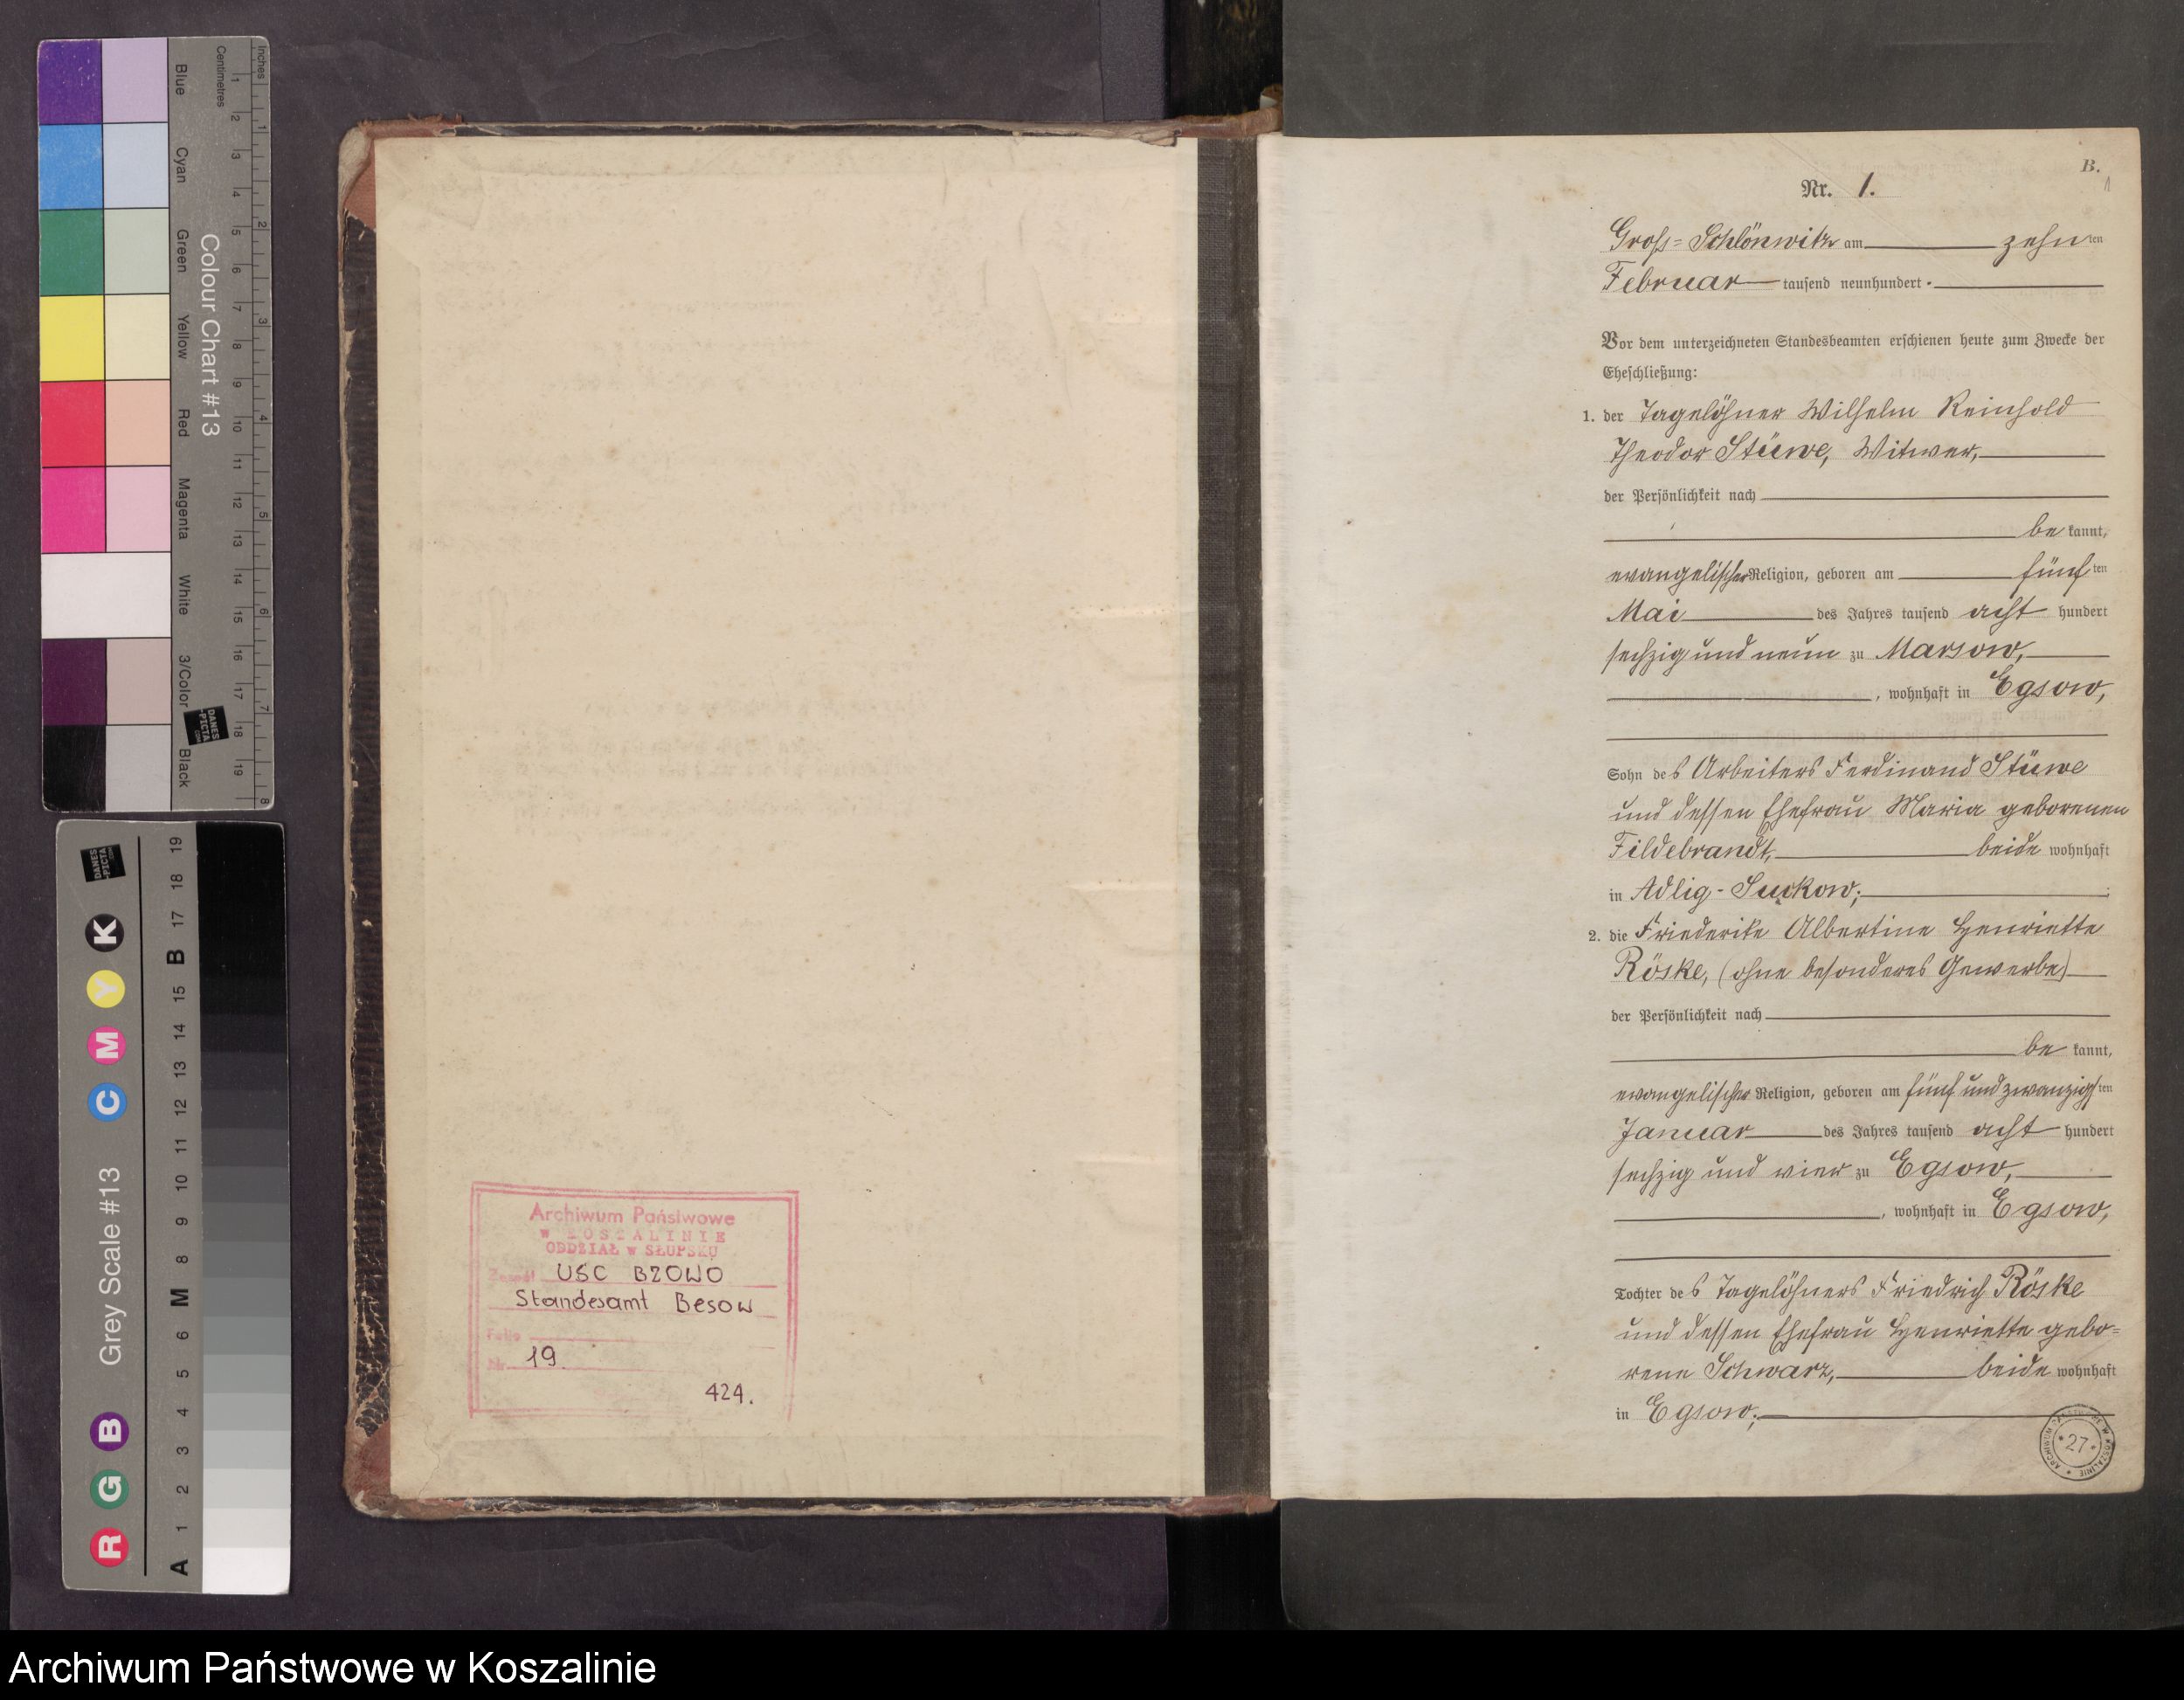 Inches
Centimetres
1 2 3 4 5 6 7 8
1 2 3 4 5 6 7 8 9 10 11 12 13 14 15 16 17 18 19
Colour Chart #13
Blue
Cyan
Green
Yellow
Red
Magenta
White
3/Color
Black
DANES
-PICTA
.COM
Grey Scale #13
R G B
C M Y K
DANES
-PICTA
.COM
A 1 2 3 4 5 6 M 8 9 10 11 12 13 14 15 B 17 18 19
Archiwum Państwowe
w KOSZALINIE
ODDZIAŁ w SŁUPSKU
Zespół USC BZOWO
Standesamt Besow
Nr. 19.
424.
B.
1
Nr. 1.
Groß-Schlönwitz am zehnten
Februar tausend neunhundert
Vor dem unterzeichneten Standesbeamten erschienen heute zum Zwecke der
Eheschließung:
1. der Tagelöhner Wilhelm Reinhold
Theodor Stüwe, Witwer,
der Persönlichkeit nach
be kannt,
evangelischer Religion, geboren am fünften
Mai des Jahres tausend acht hundert
sechzig und neun zu Marsow,
, wohnhaft in Egsow,
Sohn des Arbeiters Ferdinand Stüwe
und dessen Ehefrau Maria geborenen
Fildebrandt, beide wohnhaft
in Adlig-Suckow;
2. die Friederike Albertine Henriette
Röske, (ohne besonderes Gewerbe)
der Persönlichkeit nach
be kannt,
evangelischer Religion, geboren am fünf und zwanzigsten
Januar des Jahres tausend acht hundert
sechzig und vier zu Egsow,
, wohnhaft in Egsow,
Tochter des Tagelöhners Friedrich Röske
und dessen Ehefrau Henriette gebo=
rene Schwarz, beide wohnhaft
in Egsow;
ARCHIWUM PAŃSTWOWE W KOSZALINIE
*27*
Archiwum Państwowe w Koszalinie